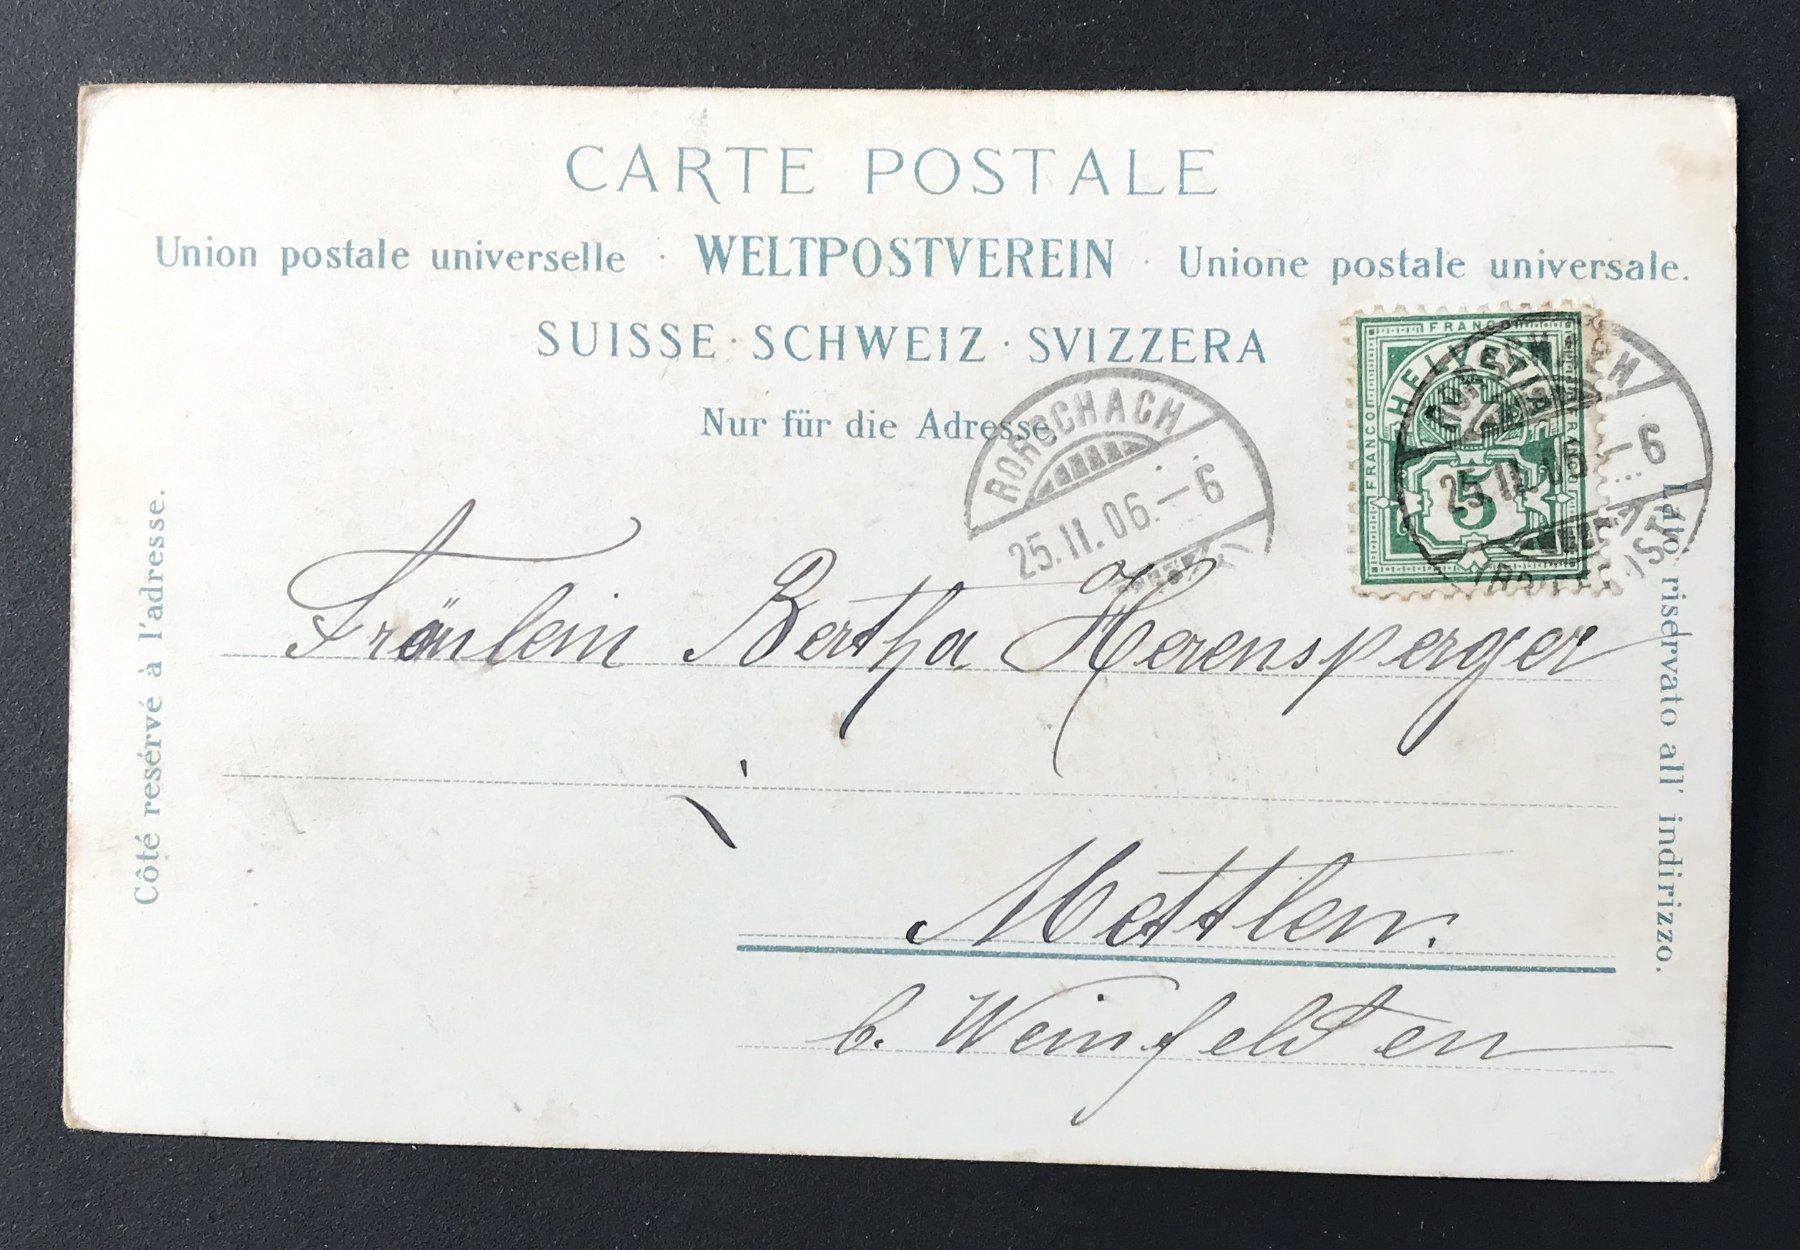 CARTE POSTALE
Union postale universelle · WELTPOSTVEREIN · Unione postale universale.
SUISSE · SCHWEIZ · SVIZZERA
Nur für die Adresse
RORSCHACH
25.II.06.–6
FRANCO
FRANCO
FRANCO
HELVETIA
5
RORSCHACH
25.II.06.–6
Côté resérvé à l'adresse.
Lato riservato all' indirizzo.
Fräulein Bertha Herensperger
Mettlen.
b. Weinfelden